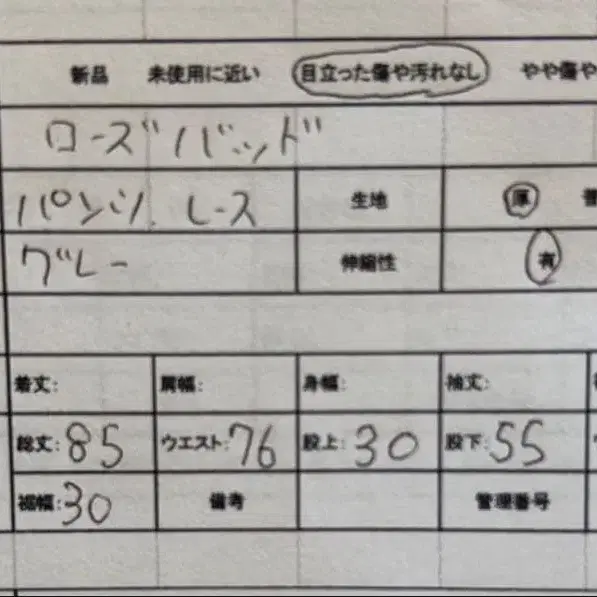 新品 未使用に近い 目立った傷や汚れなし やや傷や
ローズバッド
パンツ. レース 生地 厚
グレー 伸縮性 有
着丈: 肩幅: 身幅: 袖丈:
総丈:85 ウエスト:76 股上:30 股下:55
裾幅:30 備考 管理番号